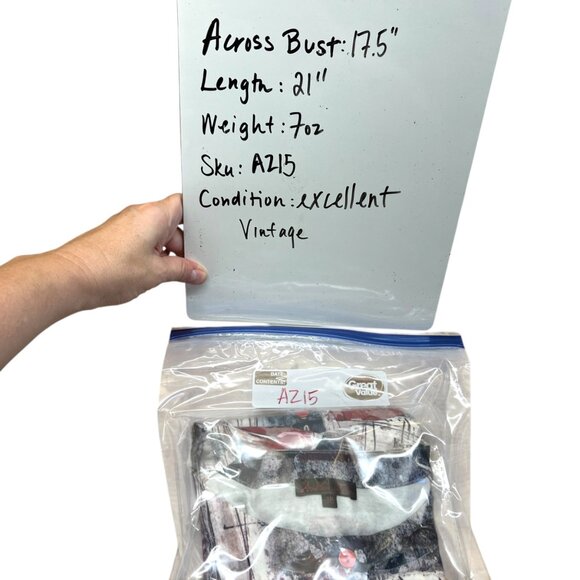 Across Bust: 17.5"
Length: 21"
Weight: 7oz
Sku: AZ15
Condition: excellent
Vintage
DATE
CONTENTS
Great Value
AZ15